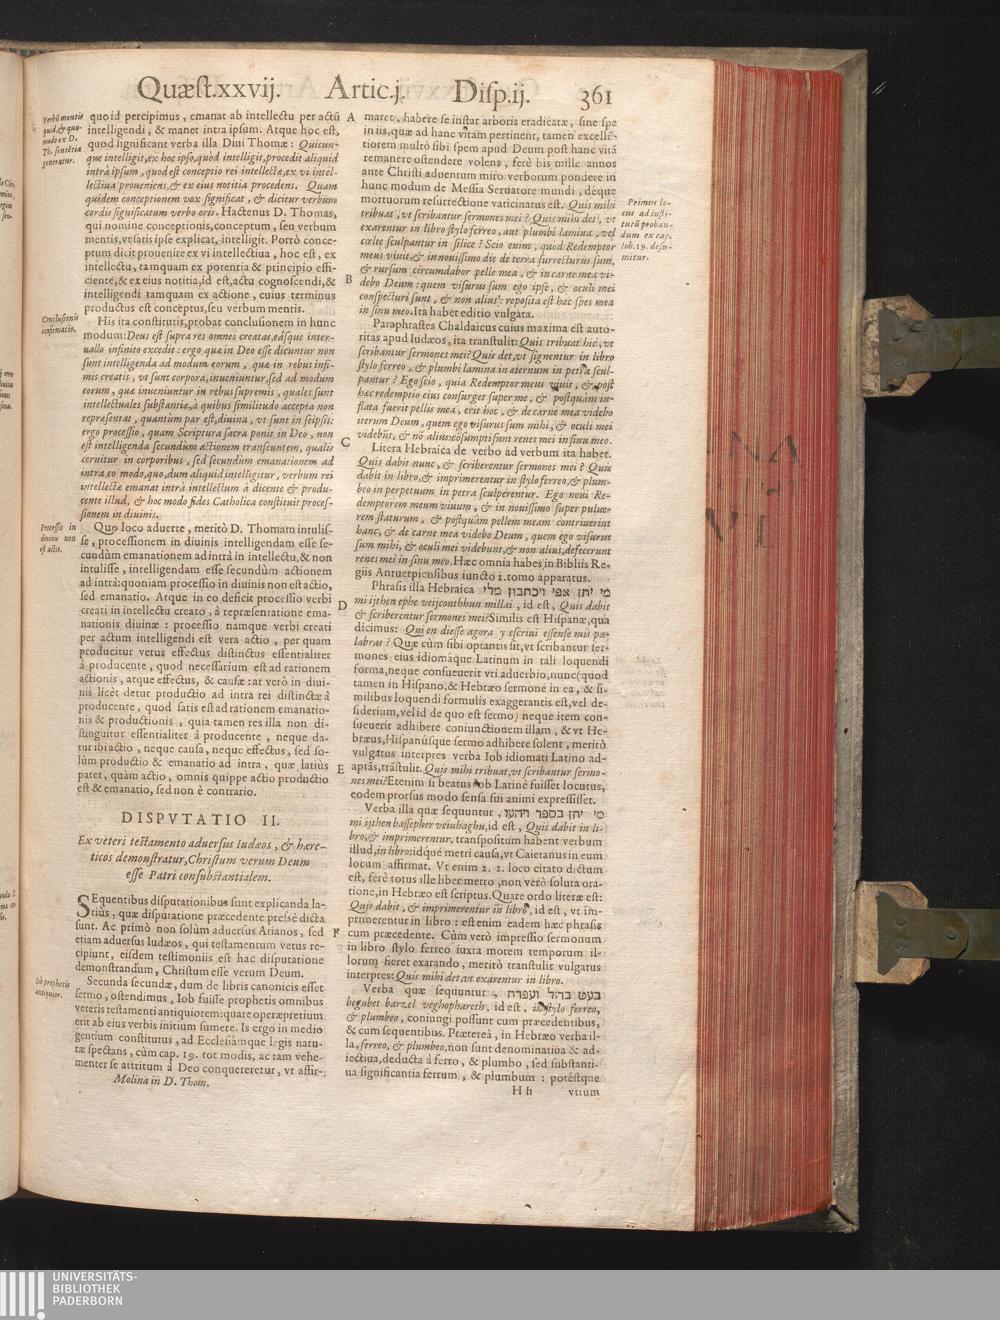 Quæst.xxvij. Artic.j. Disp.ij. 361
Verbũ mentis
quid, & quo-
modo ex D.
Th. sentẽtia
generatur.
quo id percipimus, emanat ab intellectu per actũ
intelligendi, & manet intra ipsum. Atque hoc est,
quod significant verba illa Diui Thomæ: Quicun-
que intelligit, ex hoc ipso, quòd intelligit, procedit aliquid
intrà ipsum, quod est conceptio rei intellectæ, ex vi intel-
lectiua proueniens, & ex eius notitia procedens. Quam
quidem conceptionem vox significat, & dicitur verbum
cordis significatum verbo oris. Hactenus D. Thomas,
qui nomine conceptionis, conceptum, seu verbum
mentis, vt satis ipse explicat, intelligit. Porrò conce-
ptum dicit prouenire ex vi intellectiua, hoc est, ex
intellectu, tamquam ex potentia & principio effi-
ciente, & ex eius notitia, id est, actu cognoscendi, &
intelligendi tamquam ex actione, cuius terminus
productus est conceptus, seu verbum mentis.
Conclusionis
confirmatio.
His ita constitutis, probat conclusionem in hunc
modum: Deus est supra res omnes creatas, eásque inter-
uallo infinito excedit: ergo quæ in Deo esse dicuntur non
sunt intelligenda ad modum eorum, quæ in rebus infi-
mis creatis, vt sunt corpora, inueniuntur, sed ad modum
eorum, quæ inueniuntur in rebus supremis, quales sunt
intellectuales substantiæ, à quibus similitudo accepta non
repræsentat, quantùm par est, diuina, vt sunt in seipsis:
ergo processio, quam Scriptura sacra ponit in Deo, non
est intelligenda secundùm actionem transeuntem, qualis
cernitur in corporibus, sed secundùm emanationem ad
intra, eo modo, quo, dum aliquid intelligitur, verbum rei
intellectæ emanat intrà intellectum à dicente & produ-
cente illud, & hoc modo fides Catholica constituit proces-
sionem in diuinis.
Processio in
diuinis non
est actio.
Quo loco aduerte, meritò D. Thomam intulis-
se, processionem in diuinis intelligendam esse se-
cundùm emanationem ad intrà in intellectu, & non
intulisse, intelligendam esse secundùm actionem
ad intrà: quoniam processio in diuinis non est actio,
sed emanatio. Atque in eo deficit processio verbi
creati in intellectu creato, à repræsentatione ema-
nationis diuinæ: processio namque verbi creati
per actum intelligendi est vera actio, per quam
producitur verus effectus distinctus essentialiter
à producente, quod necessarium est ad rationem
actionis, atque effectus, & causæ: at verò in diui-
nis licèt detur productio ad intra rei distinctæ à
producente, quod satis est ad rationem emanatio-
nis & productionis, quia tamen res illa non di-
stinguitur essentialiter à producente, neque da-
tur ibi actio, neque causa, neque effectus, sed so-
lùm productio & emanatio ad intra, quæ latiùs
patet, quàm actio, omnis quippe actio productio
est & emanatio, sed non è contrario.
DISPVTATIO II.
Ex veteri testamento aduersus Iudæos, & hære-
ticos demonstratur, Christum verum Deum
esse Patri consubstantialem.
SEquentibus disputationibus sunt explicanda la-
tiùs: quæ disputatione præcedente presse dicta
sunt. Ac primò non solùm aduersus Arianos, sed
etiam aduersus Iudæos, qui testamentum vetus re-
cipiunt, eisdem testimoniis est hac disputatione
demonstrandum, Christum esse verum Deum.
Iob prophetis
antiquior.
Secunda secundæ, dum de libris canonicis esset
sermo, ostendimus, Iob fuisse prophetis omnibus
veteris testamenti antiquiorem: quare operæpretium
erit ab eius verbis initium sumere. Is ergo in medio
gentium constitutus, ad Ecclesiámque legis natu-
ræ spectans, cùm cap. 19. tot modis, ac tam vehe-
menter se attritum à Deo conquereretur, vt affir-
Molina in D. Thom.
A
B
C
D
E
F
maret, habere se instar arboris eradicatæ, sine spe
in iis, quæ ad hanc vitam pertinent, tamen excellẽ-
tiorem multò sibi spem apud Deum post hanc vitã
remanere ostendere volens, ferè bis mille annos
ante Christi aduentum miro verborum pondere in
hunc modum de Messia Seruatore mundi, déque
mortuorum resurrectione vaticinatus est. Quis mihi
tribuat, vt scribantur sermones mei? Quis mihi det, vt
exarentur in libro stylo ferreo, aut plumbi lamina, vel
cælte sculpantur in silice? Scio enim, quod Redemptor
meus viuit, & in nouissimo die de terra surrecturus sum,
& rursum circumdabor pelle mea, & in carne mea vi-
debo Deum: quem visurus sum ego ipse, & oculi mei
conspecturi sunt, & non alius: reposita est hæc spes mea
in sinu meo. Ita habet editio vulgata.
Primus lo-
cus ad insti-
tutũ proban-
dum ex cap.
Iob. 19. desu-
mitur.
Paraphrastes Chaldaicus cuius maxima est auto-
ritas apud Iudæos, ita transtulit: Quis tribuat hîc, vt
scribantur sermones mei? Quis det, vt signentur in libro
stylo ferreo, & plumbi lamina in æternum in petra scul-
pantur? Ego scio, quia Redemptor meus viuit, & post
hæc redemptio eius consurget super me, & postquàm in-
flata fuerit pellis mea, erit hoc, & de carne mea videbo
iterum Deum, quem ego visurus sum mihi, & oculi mei
videbũt, & nõ alius: cõsumpti sunt renes mei in sinu meo.
Litera Hebraica de verbo ad verbum ita habet.
Quis dabit nunc, & scriberentur sermones mei? Quis
dabit in libro, & imprimerentur in stylo ferreo, & plum-
beo in perpetuum in petra sculperentur. Ego noui Re-
demptorem meum viuum, & in nouissimo super pulue-
rem staturum, & postquàm pellem meam contriuerint
hanc, & de carne mea videbo Deum, quem ego visurus
sum mihi, & oculi mei videbunt, & non alius, defecerunt
renes mei in sinu meo. Hæc omnia habes in Bibliis Re-
giis Antuerpiensibus iuncto 2. tomo apparatus.
Phrasis illa Hebraica מי יתן אפי ויכתבון מלי
mi ijthen ephe veijcouthhun millai, id est, Quis dabit
& scriberentur sermones mei? Similis est Hispanæ, qua
dicimus: Quien diesse agora y escriui essense mis pa-
labras? Quæ cùm sibi optantis sit, vt scribantur ser-
mones eius idiomáque Latinum in tali loquendi
forma, neque consueuerit vti aduerbio, nunc (quod
tamen in Hispano, & Hebræo sermone in ea, & si-
milibus loquendi formulis exaggerantis est, vel de-
siderium, vel id de quo est sermo) neque item con-
sueuerit adhibere coniunctionem illam, & vt He-
bræus, Hispanúsque sermo adhibere solent, meritò
vulgatus interpres verba Iob idiomati Latino ad-
aptãs, trãstulit. Quis mihi tribuat, vt scribantur sermo-
nes mei? Etenim si beatus Iob Latinè fuisset locutus,
eodem prorsus modo sensa sui animi expressisset.
Verba illa quæ sequuntur, מי יתן בספר ויחעו
mi ijthen bassepher veiuhaghu, id est, Quis dabit in li-
bro, & imprimerentur. transpositum habent verbum
illud, in libro: idque metri causa, vt Caietanus in eum
locum affirmat. Vt enim 2. 2. loco citato dictum
est, ferè totus ille liber metro, non verò soluta ora-
tione, in Hebræo est scriptus. Quare ordo literæ est:
Quis dabit, & imprimerentur in libro, id est, vt im-
primerentur in libro: est enim eadem hæc phrasis
cum præcedente. Cùm verò impressio sermonum
in libro stylo ferreo iuxta morem temporum il-
lorum fieret exarando, meritò transtulit vulgatus
interpres: Quis mihi det, vt exarentur in libro.
Verba quæ sequuntur, בעט ברזל ועפרת
beghet barzel veghophareth, id est, in stylo ferreo,
& plumbeo, coniungi possunt cum præcedentibus,
& cum sequentibus. Prætereà, in Hebræo verba il-
la, ferreo, & plumbeo, non sunt denominatiua & ad-
iectiua, deducta à ferro, & plumbo, sed substanti-
ua significantia ferrum, & plumbum: potéstque
H h vtrum
UNIVERSITÄTS-
BIBLIOTHEK
PADERBORN